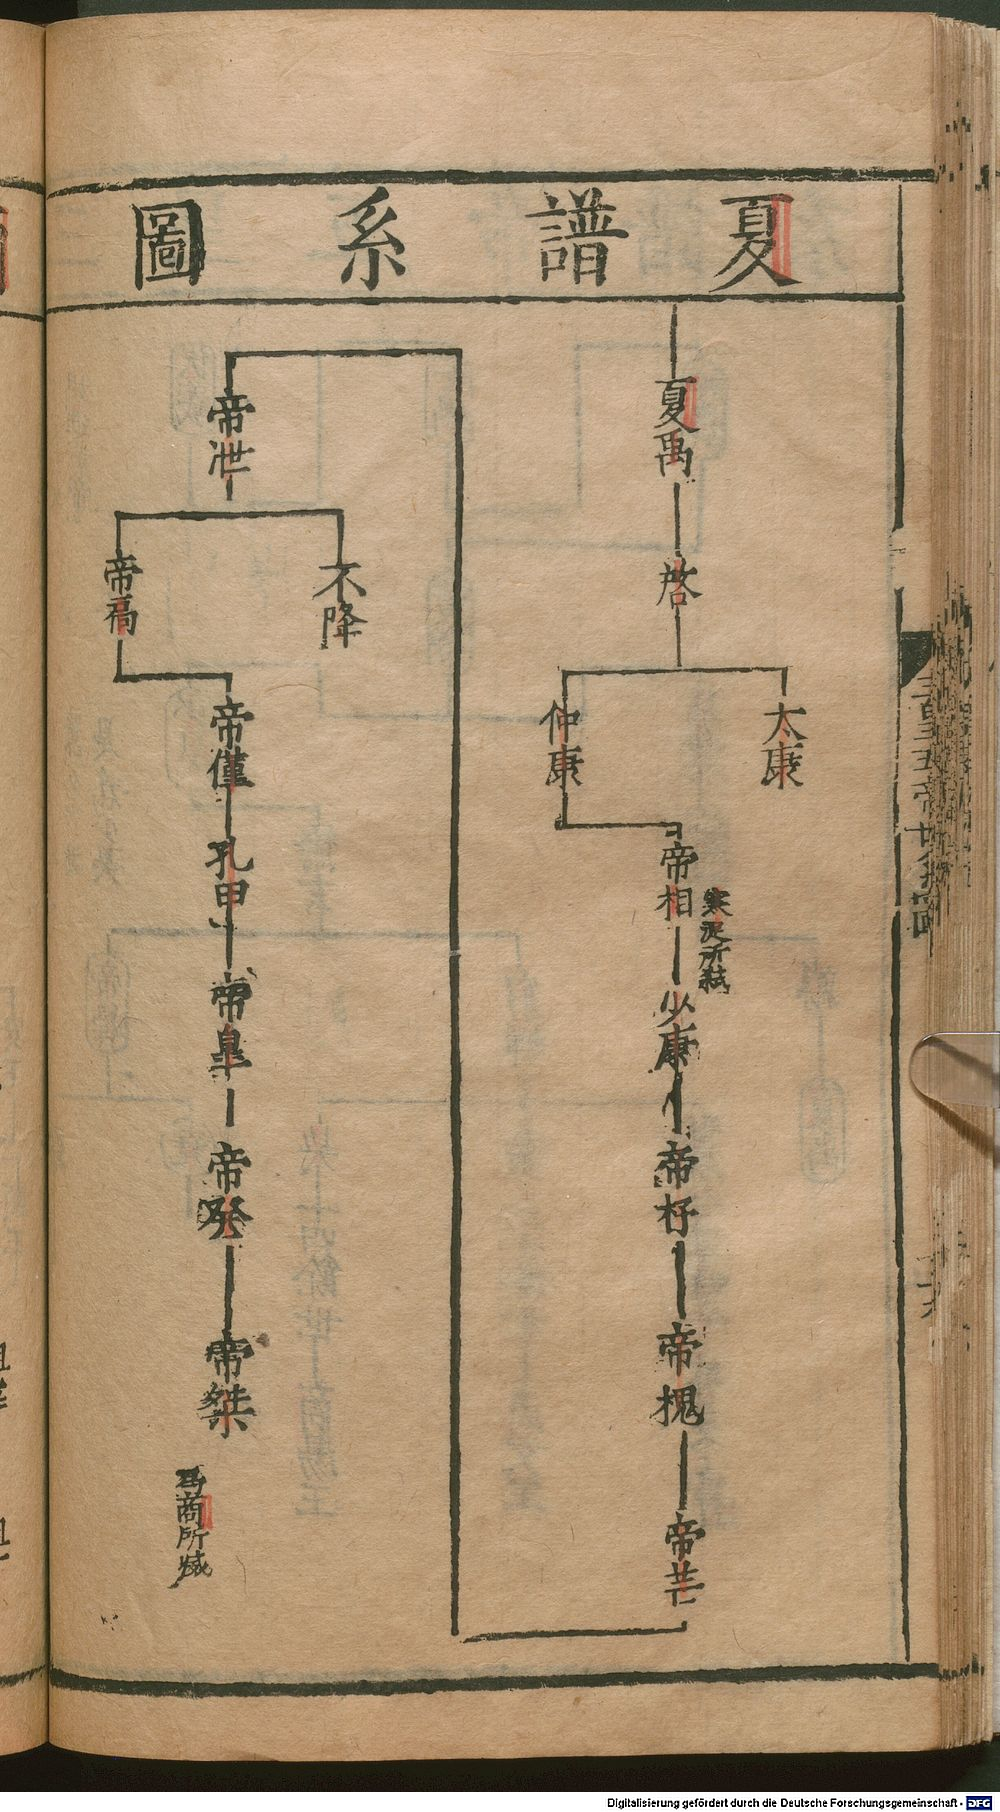 夏譜系圖
夏禹
啓
太康
仲康
帝相
寒浞所弑
少康
帝杼
帝槐
帝芒
帝泄
不降
帝扃
帝僅
孔甲
帝皐
帝發
帝桀
爲商所滅
三皇五帝世系圖
Digitalisierung gefördert durch die Deutsche Forschungsgemeinschaft - DFG